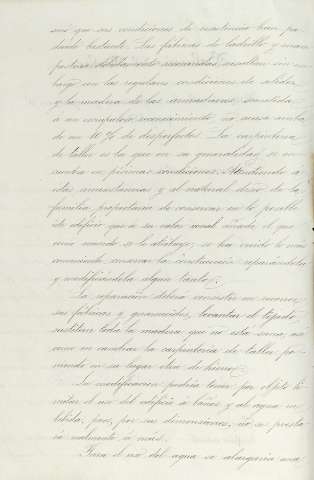 sino que sus condiciones de resistencia han per-
dido bastante. Las fábricas de ladrillo y mam-
postería debidamente reconocidas, resultan sin em-
bargo con las regulares condiciones de solidez,
y la madera de las armaduras, sometida
á un escrupuloso reconocimiento, no acusa arriba
de un 10 % de desperfectos. La carpintería
de taller es la que en su generalidad se en-
cuentra en pésimas condiciones. Atendiendo á
estas circunstancias y al natural deseo de la
familia propietaria de conservar en lo posible
este edificio que á su valor venal añade el que
como recuerdo se le atribuye, se ha creido lo más
conveniente conservar la construcción reparándola
y modificándola algun tanto.
La reparación deberá consistir en recorrer
sus fábricas y guarnecidos, levantar el tejado,
sustituir toda la madera que no esté sana, así
como en cambiar la carpintería de taller po-
niendo en su lugar otra de hierro.
La modificación podría tener por objeto li-
mitar el uso del edificio á baños y al agua en
bebida, pues, por sus dimensiones, no se presta
ia realmente á más.
Para el uso del agua se alargaría una